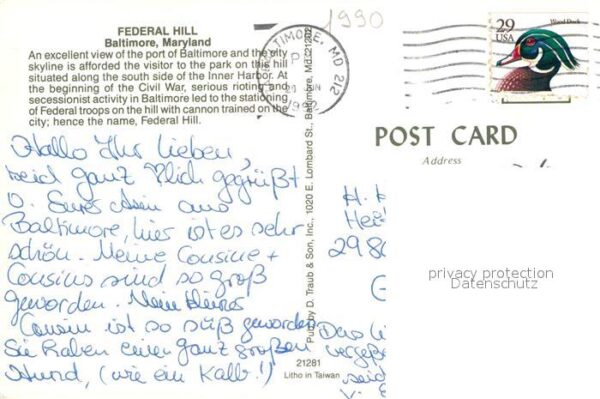 FEDERAL HILL
Baltimore, Maryland
An excellent view of the port of Baltimore and the city
skyline is afforded the visitor to the park on this hill
situated along the south side of the Inner Harbor. At
the beginning of the Civil War, serious rioting and
secessionist activity in Baltimore led to the stationing
of Federal troops on the hill with cannon trained on the
city; hence the name, Federal Hill.
Hallo Ihr Lieben,
seid ganz ♡lich gegrüßt
v. aus
Baltimore, hier ist es sehr
schön. Meine Cousine +
Cousins sind so groß
geworden. Mein kleines
Cousin ist so süß geworden
Sie haben einen ganz großen
Hund, (wie ein Kalb!)
Das
seid
v.
21281
Litho in Taiwan
Pub. by D. Traub & Son, Inc., 1020 E. Lombard St., Baltimore, Md. 21202
1990
BALTIMORE, MD 212
P
21 JUN
1992
29
USA
Wood Duck
POST CARD
Address
H.
2980
privacy protection
Datenschutz